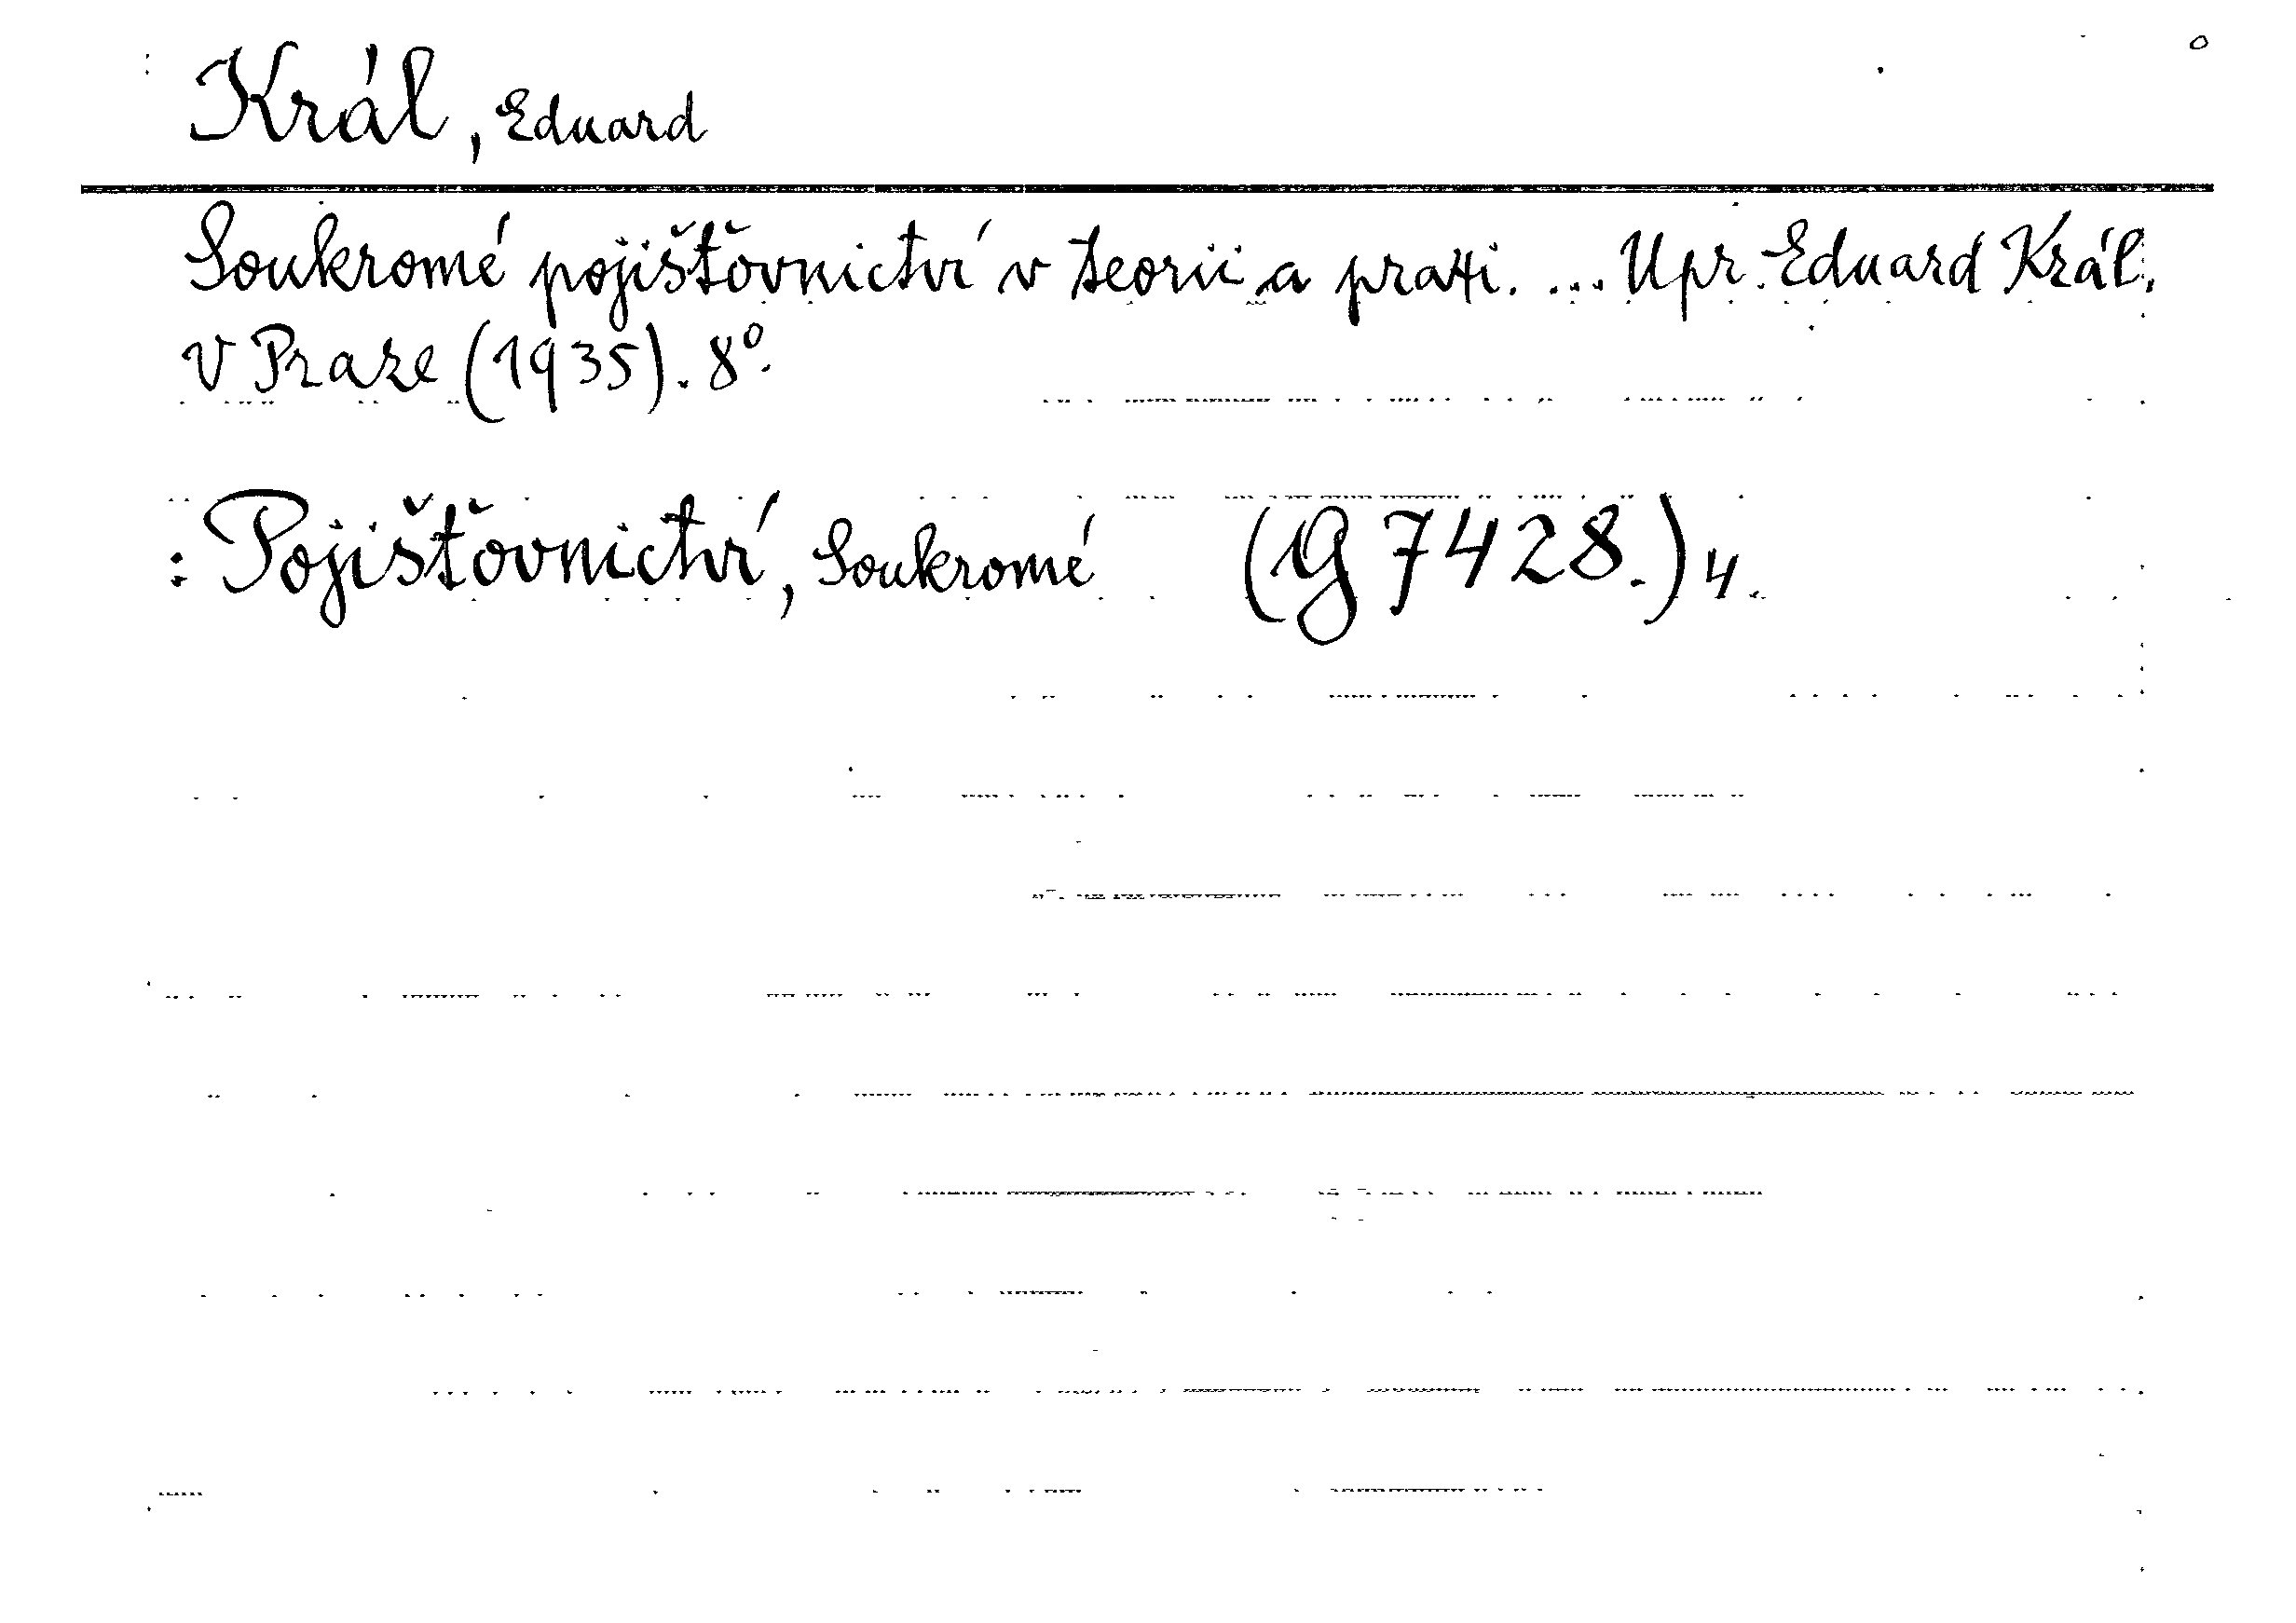 Král, Eduard
Soukromé pojišťovnictví v teorii a praxi. ... Upr. Eduard Král.
V Praze (1935). 8°.
: Pojišťovnictví, Soukromé (G 7428.) 4.